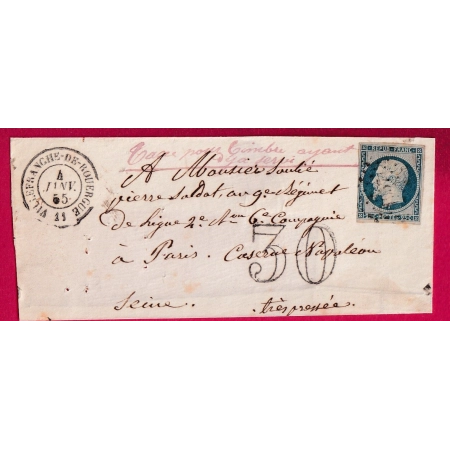 VILLEFRANCHE-DE-ROUERGUE
4
JANV.
55
11
Taxe pour Timbre ayant
déjà servi
REPUB. FRANC.
A Monsieur Soulié
pierre Soldat, au 9e Régiment
de ligne 2e Bon 6e Compagnie
à Paris. Caserne Napoleon
30
Seine. très pressée